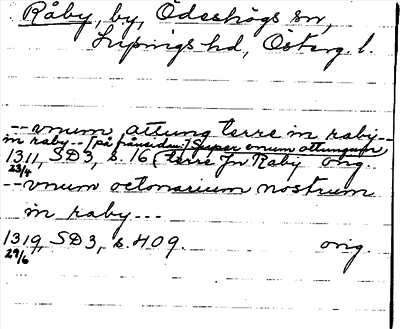 Råby, by, Ödeshögs sn,
Lysings hd, Österg. l.
-- vnum attung terre in raby --
in raby -- [på frånsidan:] Super unum attungum
1311, SD3, s. 16 (terre Jn Raby orig.
23/4
-- vnum octonarium nostrum
in raby ---
1319, SD3, s. 409. orig.
29/6